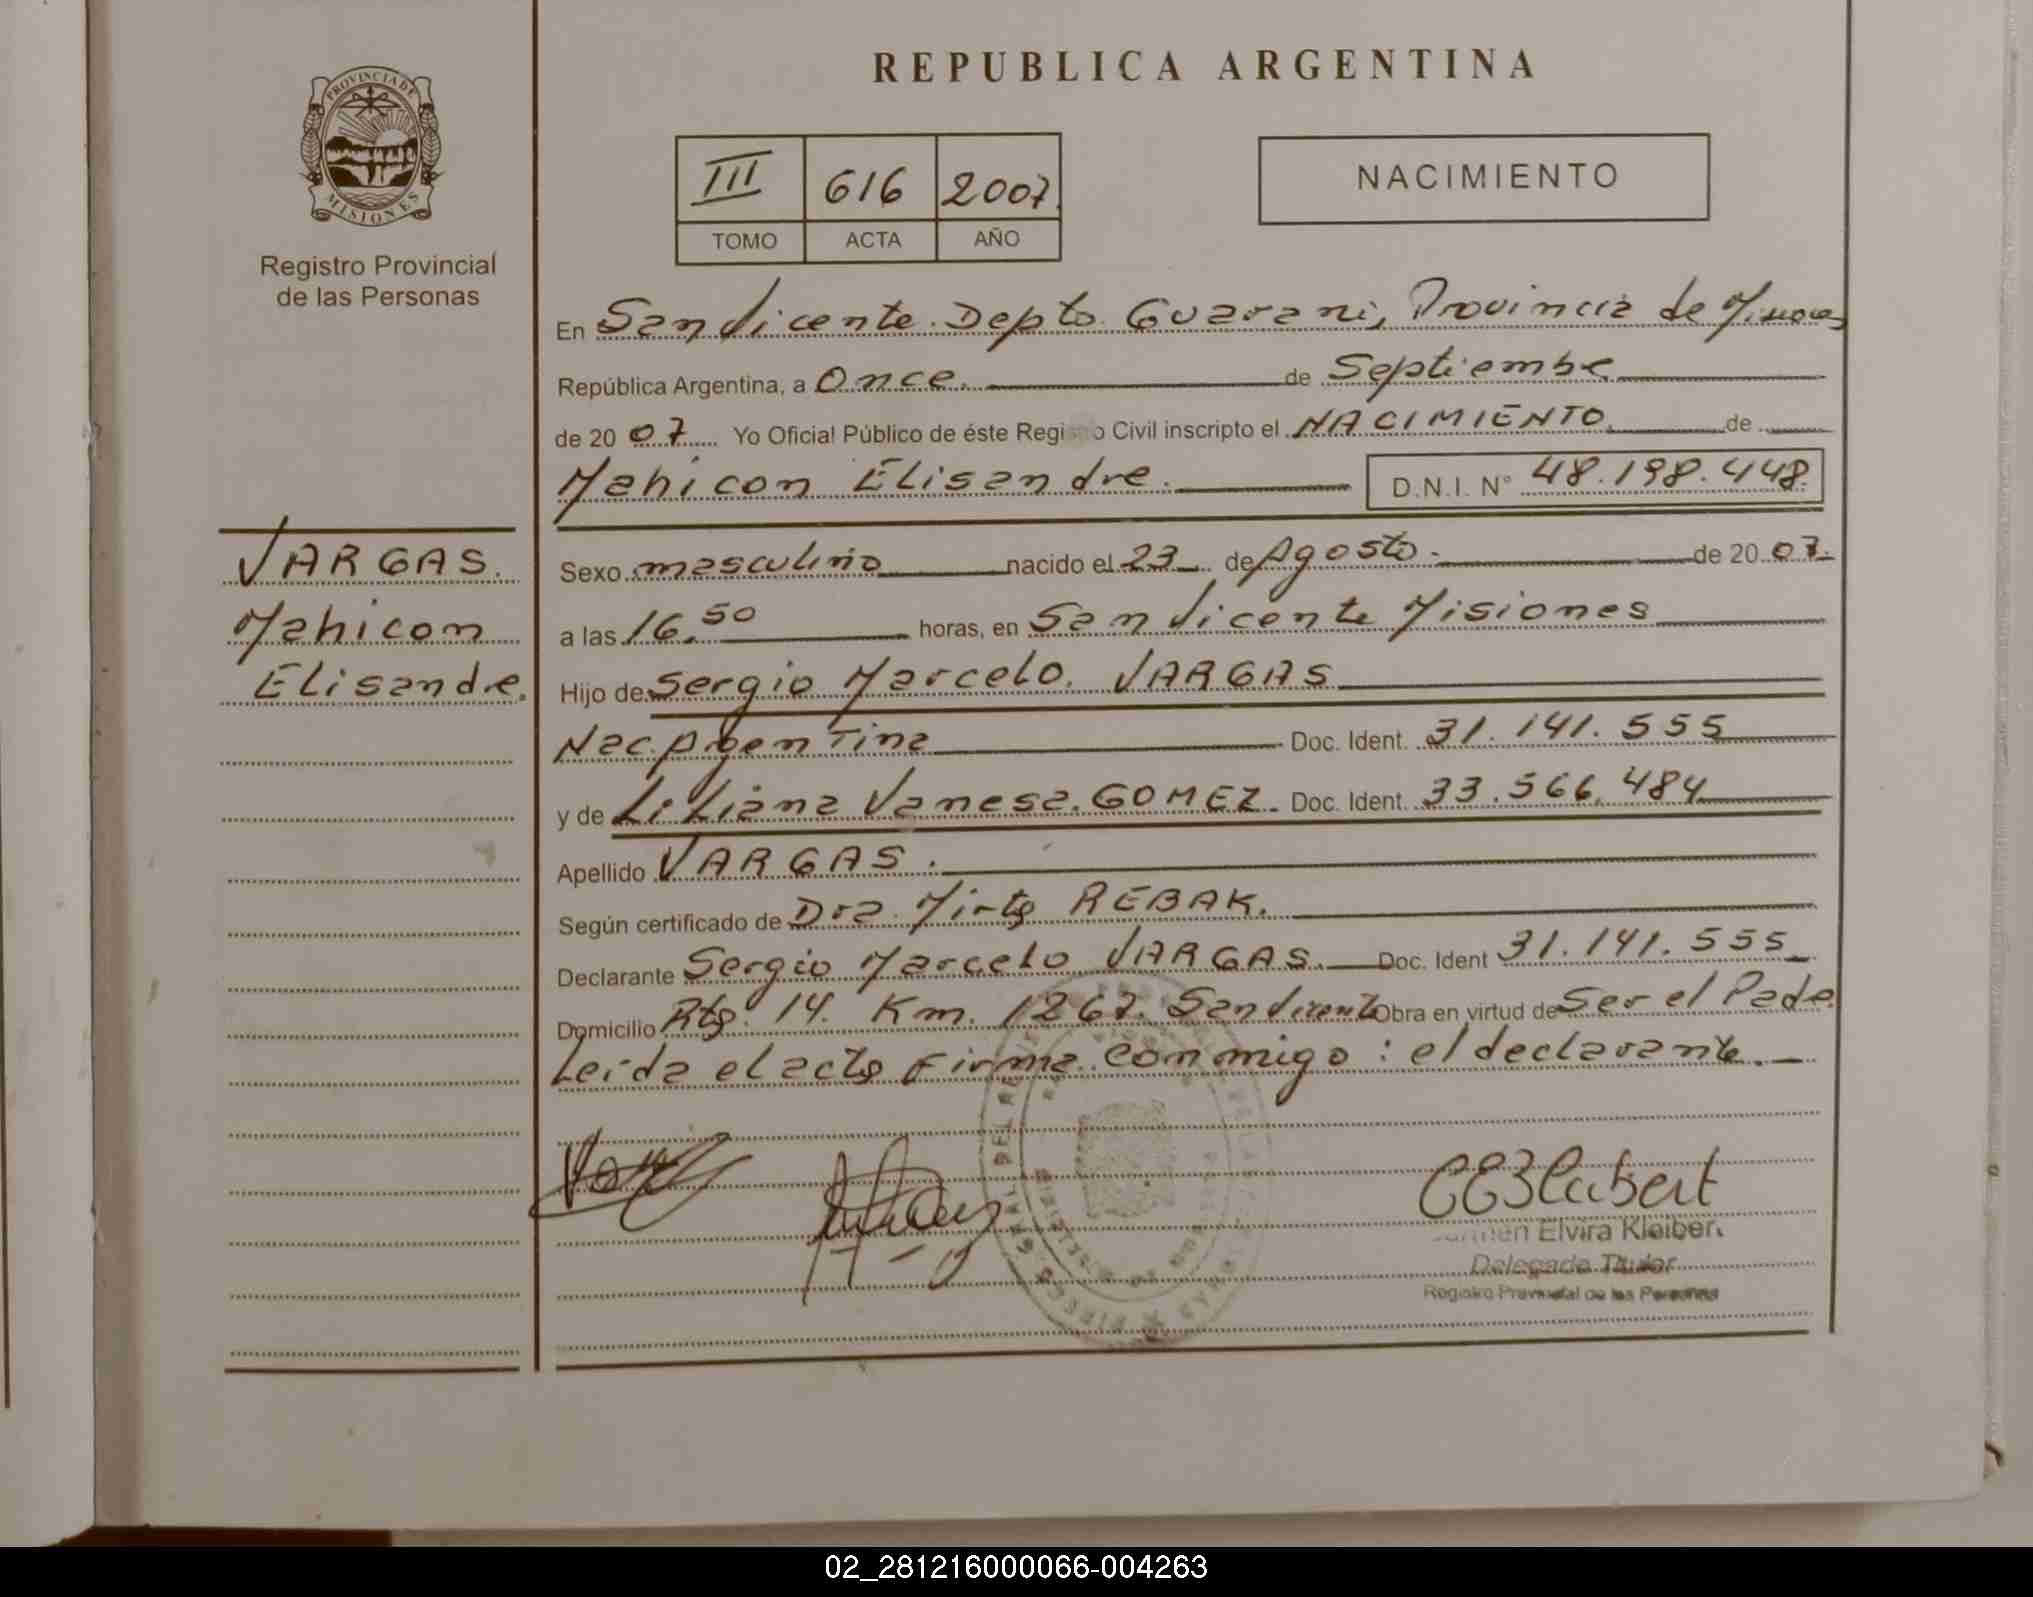 REPUBLICA ARGENTINA
PROVINCIA DE
MISIONES
Registro Provincial
de las Personas
III 616 2007
TOMO ACTA AÑO
NACIMIENTO
En San Vicente. Depto. Guarani, Provincia de Misiones
República Argentina, a Once. de Septiembe
de 20 07 Yo Oficial Público de éste Registro Civil inscripto el NACIMIENTO. de
Mahicon Elisandre. D.N.I. N° 48.198.448.
VARGAS.
Mahicon
Elisandre.
Sexo masculino nacido el 23 de Agosto. de 20 07.
a las 16.50 horas, en San Vicente Misiones
Hijo de Sergio Marcelo. VARGAS
Nac. Argentina Doc. Ident. 31.141.555
y de Liliana Vanesa. GOMEZ. Doc. Ident. 33.566.484
Apellido VARGAS.
Según certificado de Dra. Mirta REBAK.
Declarante Sergio Marcelo VARGAS. Doc. Ident 31.141.555
Domicilio Rta. 14. Km. 1267. San Vicente Obra en virtud de Ser el Pade.
Leida el acta Firma conmigo: el declarante.
Elvira Kleiber
Delegada Titular
Registro Provincial de las Personas
02_281216000066-004263